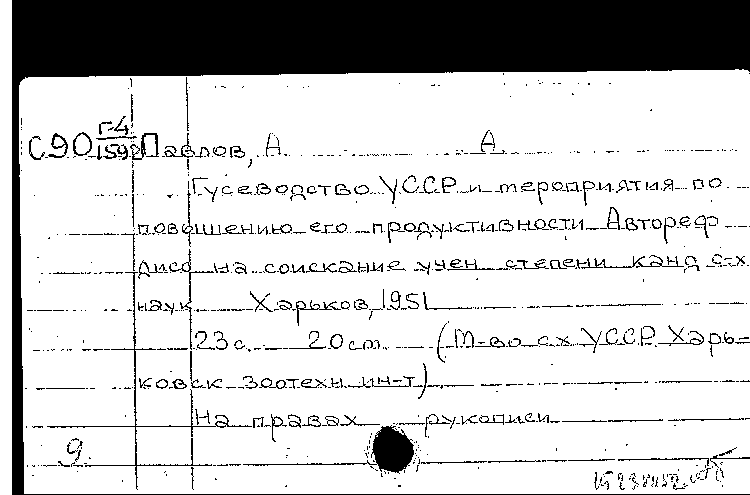 С90 Г-4
1592 Павлов, А А.
Гусеводство УССР и мероприятия по
повышению его продуктивности Автореф
дисс на соискание учен степени канд с-х
наук Харьков, 1951
23с. 20см. (М-во с х УССР. Харь-
ковск зоотехн ин-т)
На правах рукописи
9.